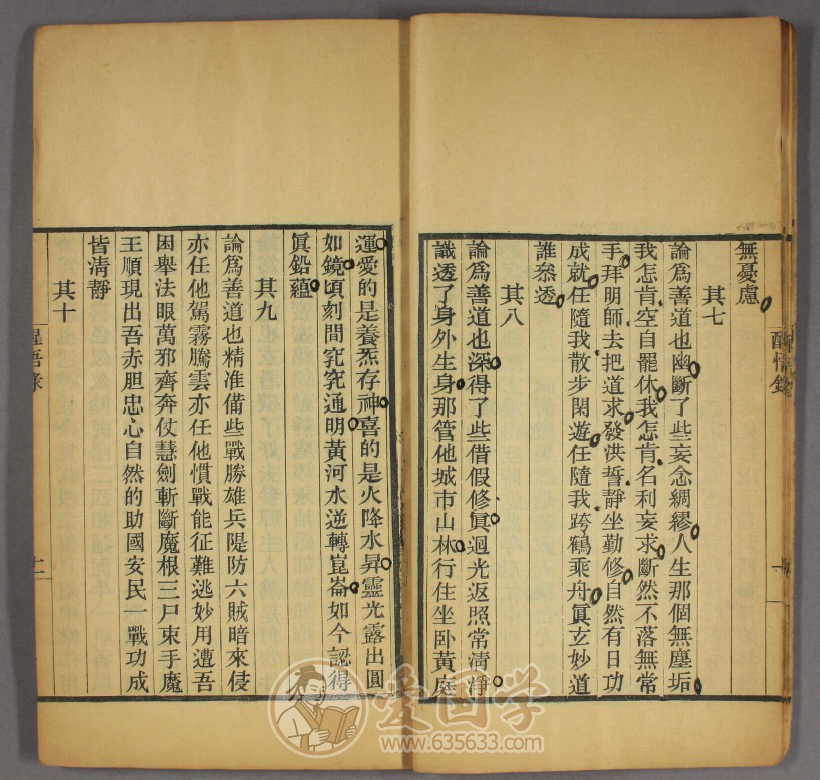 無憂慮
其七
論爲善道也幽斷了些妄念綢繆人生那個無塵垢
我怎肯空自罷休我怎肯名利妄求斷然不落無常
手拜明師去把道求發洪誓靜坐勤修自然有日功
成就任隨我散步閑遊任隨我跨鶴乘舟眞玄妙道
誰叅透
其八
論爲善道也深得了些借假修眞迴光返照常清淨
識透了身外生身那管他城市山林行住坐卧黄庭
運愛的是養炁存神喜的是火降水昇靈光露出圓
如鏡頃刻間究究通明黄河水逆轉崑崙如今認得
眞鉛蘊
其九
論爲善道也精准備些戰勝雄兵隄防六賊暗來侵
亦任他駕霧騰雲亦任他慣戰能征難逃妙用遭吾
困舉法眼萬邪齊奔仗慧劍斬斷魔根三尸束手魔
王順現出吾赤胆忠心自然的助國安民一戰功成
皆清靜
其十
愛国学
www.635633.com